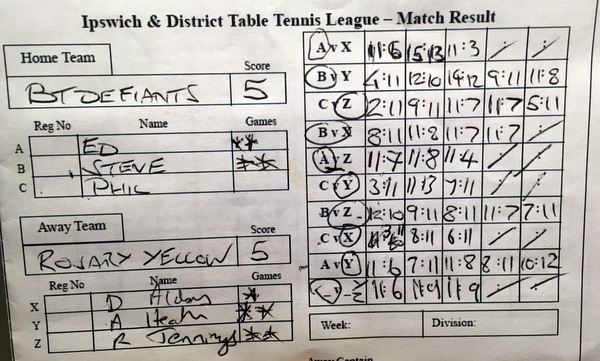 Ipswich & District Table Tennis League – Match Result
Home Team
Score
BT DEFIANTS 5
Reg No Name Games
A ED **
B STEVE **
C PHIL
Away Team
Score
ROSARY YELLOW 5
Reg No Name Games
X D *
Y A Heath **
Z R Jennings **
A v X 11:6 15:13 11:3
B v Y 4:11 12:10 14:12 9:11 11:8
C v Z 2:11 9:11 11:7 11:7 5:11
B v X 8:11 11:2 11:7 11:7
A v Z 11:7 11:8 11:4
C v Y 3:11 11:13 7:11
B v Z 12:10 9:11 8:11 11:7 7:11
C v X 8:11 6:11
A v Y 11:6 7:11 11:8 8:11 10:12
11:6 11:9 11:9
Week: Division: